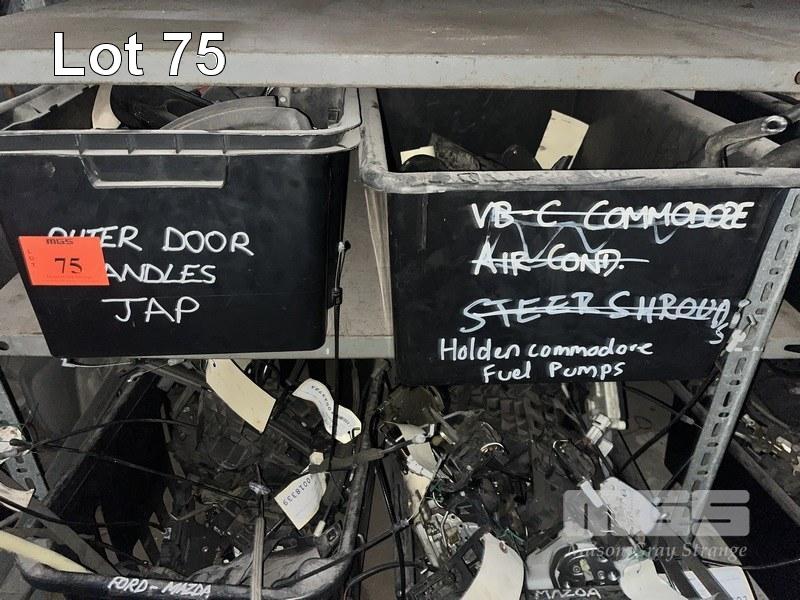 Lot 75
OUTER DOOR
HANDLES
JAP
MGS
LOT
75
VB-C COMMODORE
AIR COND.
STEER SHROUDS
Holden commodore
Fuel Pumps
0018339
FORD - MAZDA
MAZDA
MGS
Mason Gray Strange